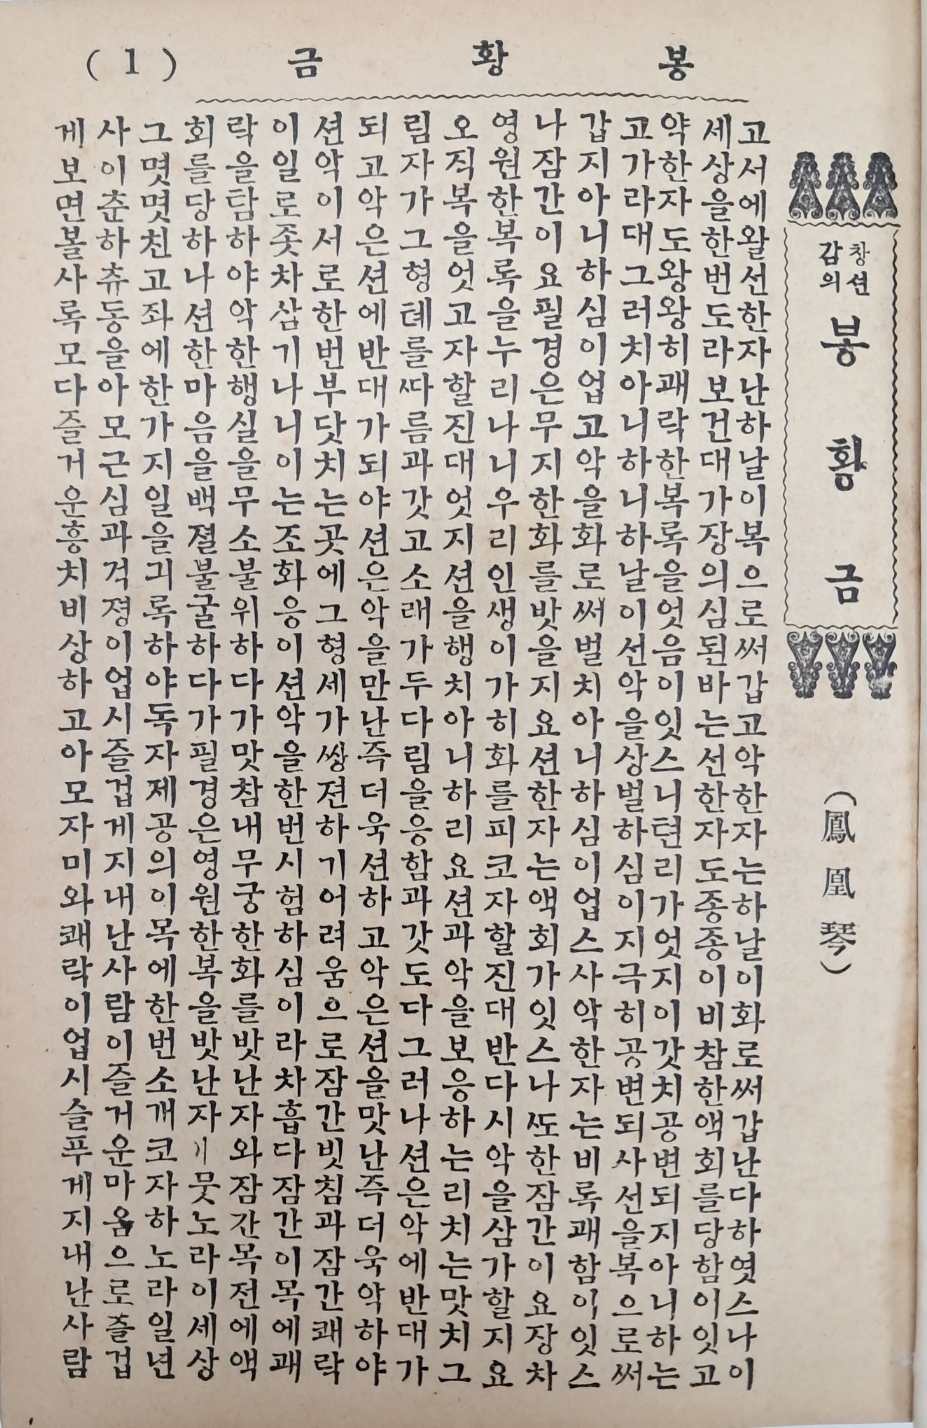 봉황금 (1)
창션
감의
봉황금
(鳳凰琴)
고서에왈선한자난하날이복으로써갑고악한자는하날이화로써갑난다하엿스나이
세상을한번도라보건대가장의심된바는선한자도종종이비참한액회를당함이잇고
악한자도왕왕히쾌락한복록을엇음이잇스니텬리가엇지이갓치공변되지아니하는
고가라대그러치아니하니하날이선악을상벌하심이지극히공변되사선을복으로써
갑지아니하심이업고악을화로써벌치아니하심이업스사악한자는비록쾌함이잇스
나잠간이요필경은무지한화를밧을지요션한자는액회가잇스나또한잠간이요장차
영원한복록을누리나니우리인생이가히화를피코자할진대반다시악을삼가할지요
오직복을엇고자할진대엇지션을행치아니하리요션과악을보응하는리치는맛치그
림자가그형톄를따름과갓고소래가두다림을응함과갓도다그러나션은악에반대가
되고악은션에반대가되야션은악을만난즉더욱션하고악은션을맛난즉더욱악하야
션악이서로한번부닷치는곳에그형세가쌍젼하기어려움으로잠간빗침과잠간쾌락
이일로좃차삼기나니이는조화응이션악을한번시험하심이라차흡다잠간이목에쾌
락을탐하야악한행실을무소불위하다가맛참내무궁한화를밧난자와잠간목전에액
회를당하나션한마음을백졀불굴하다가필경은영원한복을밧난자〃뭇노라이세상
그몃몃친고좌에한가지일을긔록하야독자제공의이목에한번소개코자하노라일년
사이춘하츄동을아모근심과걱졍이업시즐겁게지내난사람이즐거운마옴으로즐겁
게보면볼사록모다즐거운흥치비상하고아모자미와쾌락이업시슬푸게지내난사람